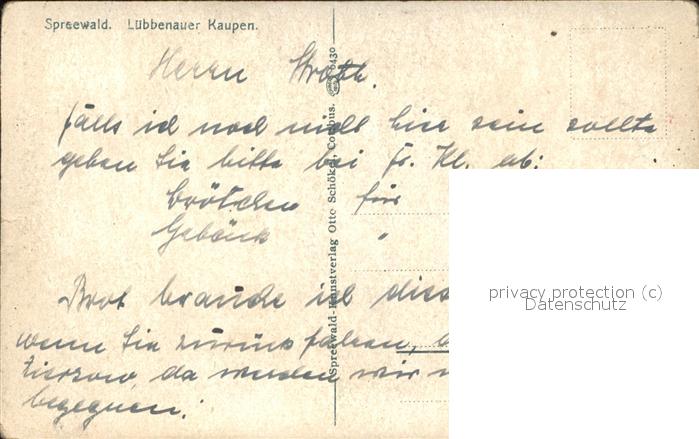 Spreewald. Lübbenauer Kaupen.
Herrn
falls ich noch nicht hier sein sollte
geben Sie bitte bei Fr. Kl. ab:
Brötchen für
Gebäck "
Brot brauche ich dies
wenn Sie zurück fahren,
da werden wir
begegnen!
Spreewald-Kunstverlag Otto Schökel, Cottbus. 6430
privacy protection (c)
Datenschutz